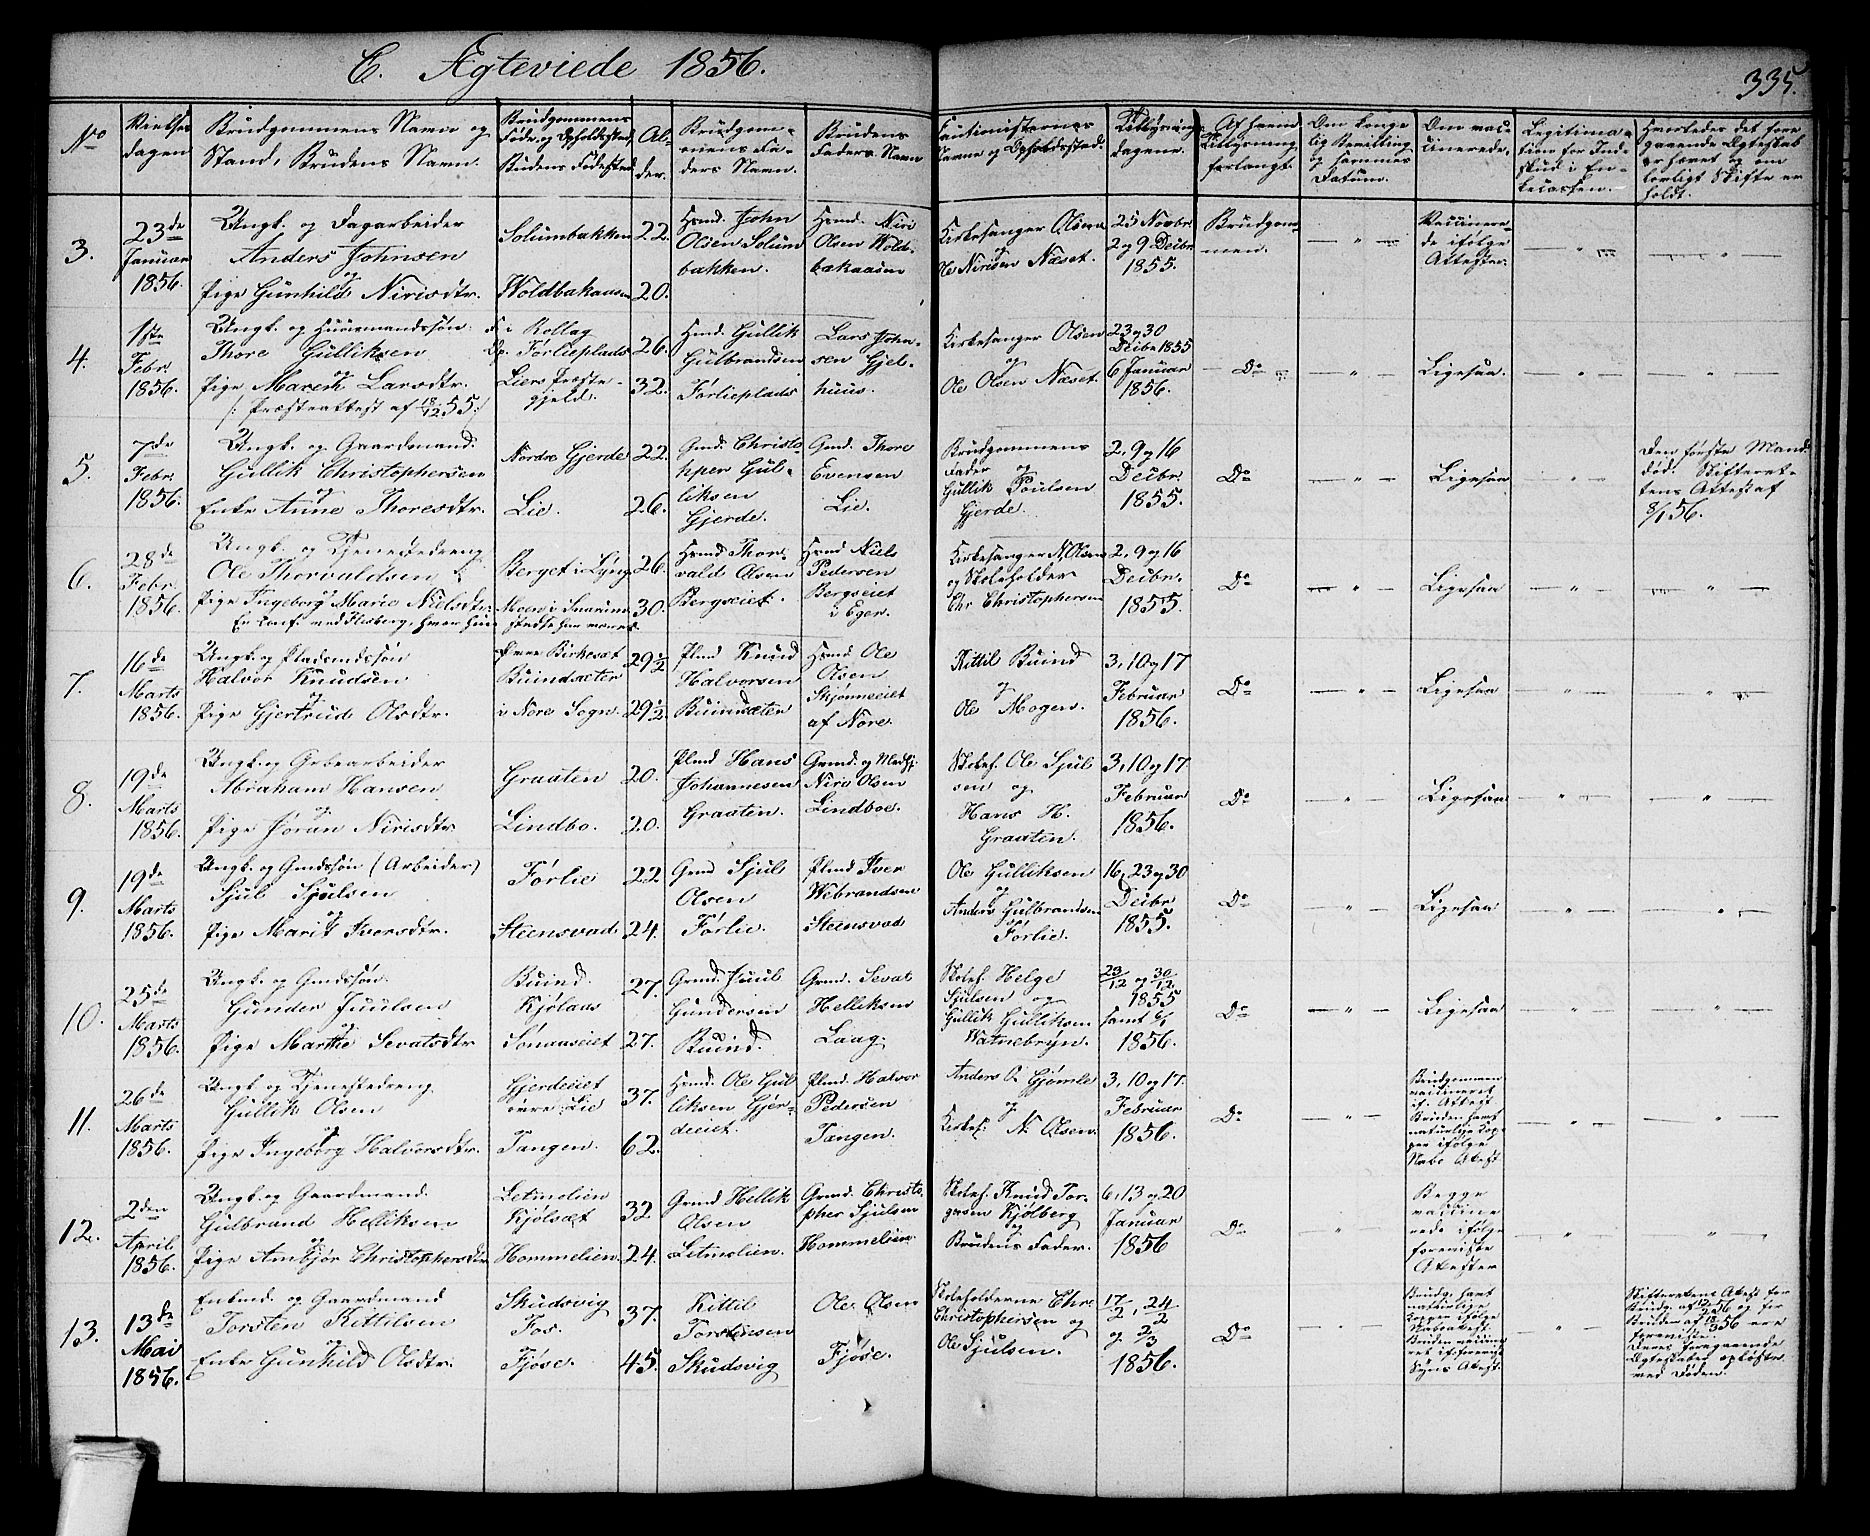 C. Ægteviede 1856.
335.
No
Vielses
dagen
Brudgommens Navn og
Stand, Brudens Navn.
Brudgommens
Føde og Opholdssted,
Brudens Fødested
Al-
der.
Brudgom-
mens Fa-
ders Navn.
Brudens
Faders Navn
Cautionisternes
Navne og Opholdssted.
Tillysnings
dagene.
Af hvem
Tillysning
forlangt.
Om konge
lig Bevilling
og sammes
Datum.
Om vac-
cinerede.
Legitima-
tion for Ind-
skud i En-
kecassen.
Hvorledes det fore
gaaende Ægteskab
er hævet og om
lovligt Skifte er
holdt.
3.
23de
Januar
1856.
Ungk. og Dagarbeider
Anders Johnsen
og
Pige Gunhild Nirisdtr.
Solumbakken
Woldbakaasen
22.
20.
Huusmd. John
Olsen Solum
bakken.
Huusmd. Niri
Olsen Wold-
bakaasen
Kirkesanger Olsen
og
Ole Nirisen Næset.
25 Novbr
2 og 9 Decbr
1855.
Brudgom-
men.
Vaccinere-
de ifølge
Attester.
4.
1ste
Febr.
1856.
Ungk. og Huusmandssøn
Thore Gulliksen
og
Pige Maren Larsdtr.
/: Præsteattest af 18/12 55:/
F. i Rollag
Op. Førlieplads
Liers Præste-
gjeld.
26.
32.
Hmd. Gullik
Gulbrandsen
Førlieplads
Lars John-
sen Gjel-
huus
Kirkesanger Olsen
og
Ole Olsen Næset.
23 og 30
Decbr 1855
6 Januar
1856.
Do
Ligesaa.
5.
7de
Febr.
1856.
Ungk. og Gaardmand.
Gullik Christophersen
og
Enke Anne Thoresdtr.
Nordre Gjerde
Lie.
22.
26.
Gmd. Christo-
pher Gul-
liksen
Gjerde.
Gmd. Thore
Evensen
Lie.
Brudgommens
Fader og
Gullik Poulsen
Gjerde.
2, 9 og 16
Decbr.
1855.
Do
Ligesaa
Den første Mand
død. Skifteret-
tens Attest af
8/1 56.
6.
28de
Febr.
1856.
Ungk. og Tjenestedreng
Ole Thorvaldsen
Pige Ingeborg Marie Nielsdtr.
Berget i Lyng
Moen i Snarum
26.
30.
Hmd Thor-
vald Olsen
Bergseiet.
Hmd Niels
Pedersen
Bergseiet
i Eger.
Kirkesanger N. Olsen
og Skoleholder
Chr Christophersen
2, 9 og 16
Decbr.
1855.
Do
Ligesaa
7.
16de
Marts
1856.
Ungk. og Pladsmdssøn
Halvor Knudsen
og
Pige Gjertrud Olsdtr.
Birkesæt
Buindsæter
i Nore Sogn.
29½
29½.
Plmd Knud
Halvorsen
Buindsæter
Hmd Ole
Olsen
Skjønneeiet
af Nore.
Kittil Buind
og
Ole Mogen.
3, 10 og 17
Februar
1856.
Do
Ligesaa
8.
19de
Marts
1856.
Ungk. og Grbearbeider
Abraham Hansen
og
Pige Jøran Nirisdtr.
Graaten
Lindbo.
20.
20.
Plmd Hans
Johannesen
Graaten.
Grmd. og Medhj.
Niri Olsen
Lindboe.
Skolef. Ole Sjul
sen og
Hans H.
Graaten.
3, 10 og 17
Februar
1856.
Do
Ligesaa
9.
19de
Marts
1856.
Ungk. og Gmdssøn (Arbeider)
Sjul Sjulsen
og
Pige Marit Iversdtr.
Førlie
Steensvad.
22
24.
Grmd Sjul
Olsen
Førlie.
Plmd Iver
Webrandsen
Steensvad
Ole Gulliksen
og
Anders Gulbrandsen
Førlie.
16, 23 og 30
Decbr
1855.
Do
Ligesaa
10.
25de
Marts
1856.
Ungk. og Gmdssøn.
Gunder Juulsen
og
Pige Marthe Sevatsdtr.
Buind.
Kjølaas
Sønaaseiet
27.
27.
Grmd. Juul
Gundersen
Buind.
Grmd. Sevat
Helliksen
Laag.
Skolef. Helge
Sjulsen og
Gullik Gulliksen
Watnebryn.
23/12 og 30/12
1855
samt 6/1
1856.
Do
Ligesaa
11.
26de
Marts
1856.
Ungk. og Tjenestedreng.
Gullik Olsen
og
Pige Ingeborg Halvorsdtr.
Gjerdeeiet
Lie
Tangen.
37.
62.
Hmd. Ole Gul
liksen Gjer-
deeiet.
Plmd. Halvor
Pedersen
Tangen.
Anders O. Gjømle
og
Kirkes: N. Olsen.
3, 10 og 17.
Februar
1856.
Do
Brudgommen
vaccineret
if. Attest
Bruden havt
naturlige Kop-
per ifølge
Nabo Attest
12.
2den
April
1856.
Ungk. og Gaardmand.
Gulbrand Helliksen
og
Pige Ambjør Christophersdtr
Letmelien
Kjølsæt
Hommelien.
32
24.
Grmd Hellik
Olsen
Letmelien.
Grmd. Christo-
pher Sjulsen
Hommelien
Skolef. Knud Tor-
gersen Kjølberg
og
Brudens Fader.
6, 13 og 20
Januar
1856
Do
Begge
vaccine
rede ifølge
foreviste
Attester
13.
13de
Mai
1856.
Enkmd. og Gaardmand
Torsten Kittilsen
og
Enke Gunhild Olsdtr.
Skudsvig
Fos.
Fjøse.
37.
45.
Kittil
Torstensen
Skudsvig
Ole Olsen
Fjøse.
Skoleholderne Chr.
Christophersen og
Ole Sjulsen.
17/2, 24/2
og 2/3
1856.
Do
Brudg. havt
naturlige
Kopper ifølge
Naboattest.
Bruden vaccine
ret if. forevist
Syns Attest.
Skifterettens Attest for
Brudg. af 12/2 56 og for
Bruden af 18/3 56 ere
foreviste.
Deres foregaaende
Ægteskaber opløste
ved Døden.